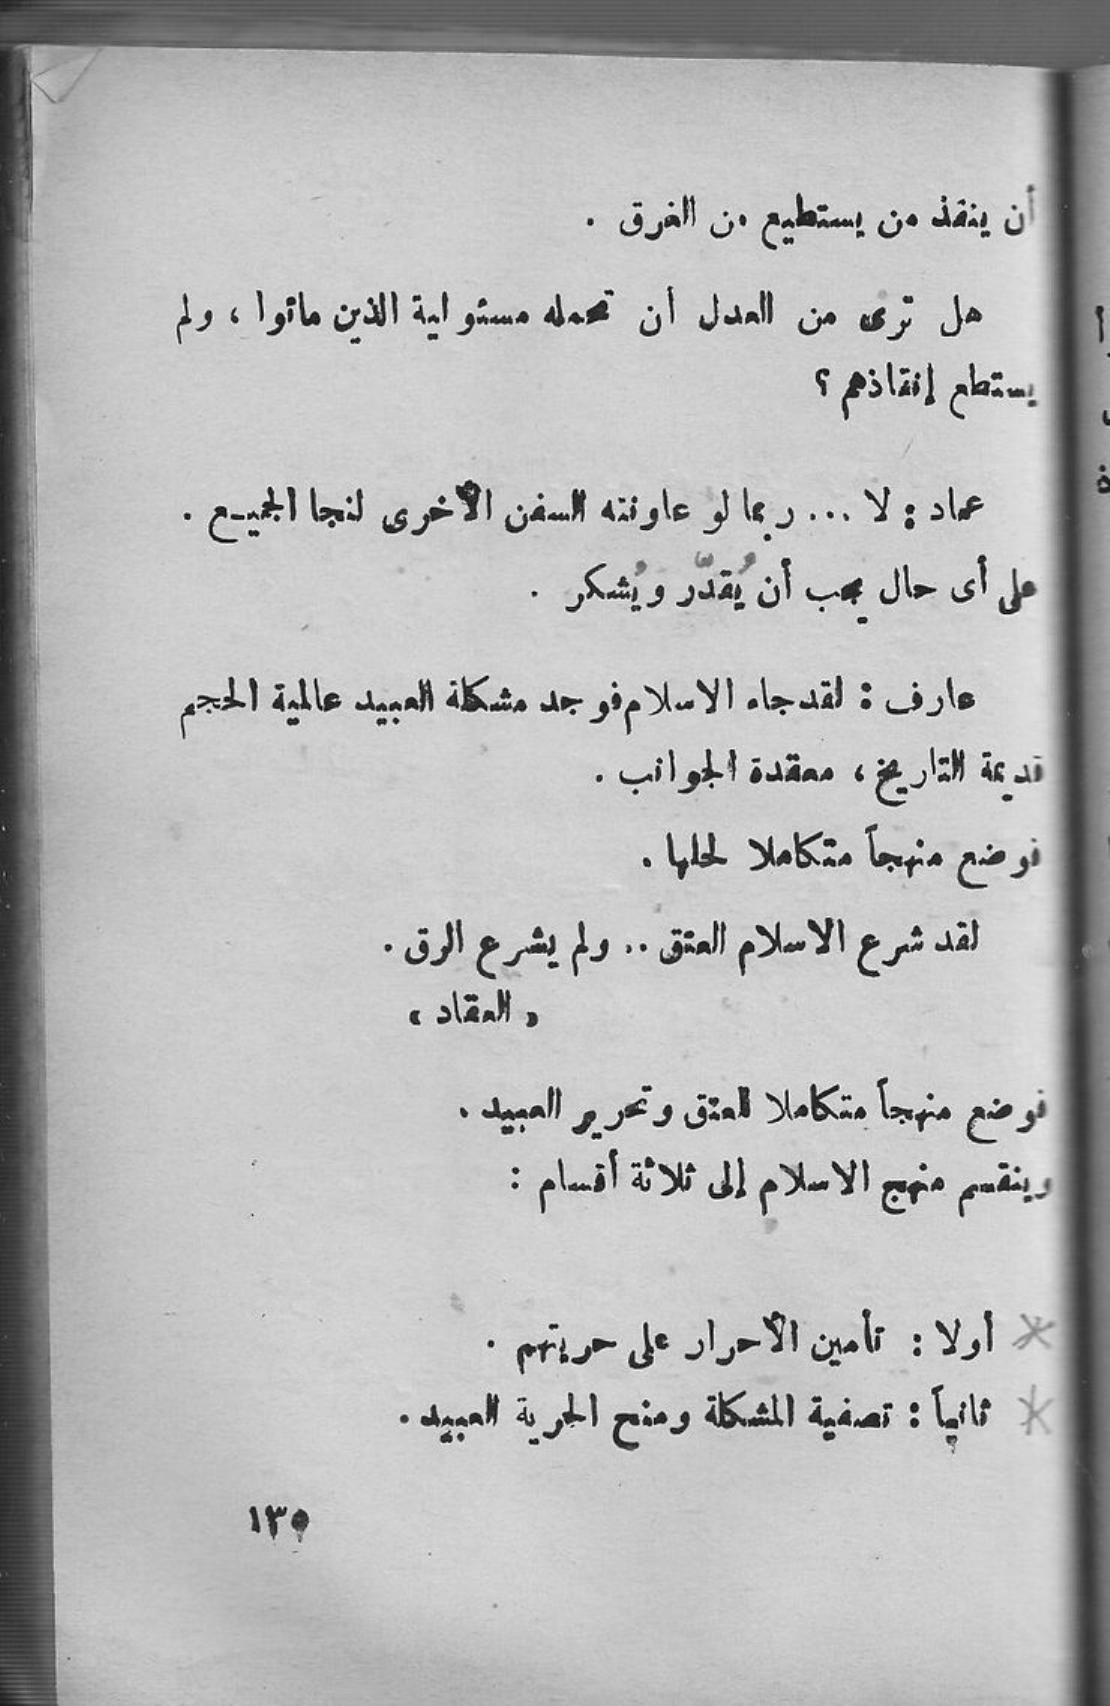 أن ينقذ من يستطيع من الغرق .
هل ترى من العدل أن تحمله مسئولية الذين ماتوا ، ولم
يستطع إنقاذهم ؟
عماد : لا ... ربما لو عاونته السفن الأخرى لنجا الجميع .
على أى حال يجب أن يُقدّر ويُشكر .
عارف : لقد جاء الاسلام فوجد مشكلة العبيد عالمية الحجم
قديمة التاريخ ، معقدة الجوانب .
فوضع منهجاً متكاملا لحلها .
لقد شرع الاسلام العتق .. ولم يشرع الرق .
« العقاد »
فوضع منهجاً متكاملا للعتق وتحرير العبيد .
وينقسم منهج الاسلام إلى ثلاثة أقسام :
* أولا : تأمين الأحرار على حريتهم .
* ثانياً : تصفية المشكلة ومنح الحرية العبيد .
١٣٥